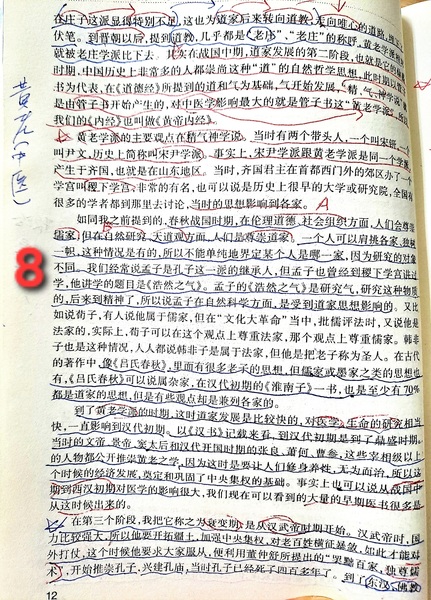 在庄子这派显得特别不足,这也为道家后来转向道教,走向唯心的道路,埋
伏笔。到晋朝以后,提到道教,几乎都是"老庄"的称呼,黄老学派
就被老庄学派比下去。其实在战国中期,道家发展的第二阶段,也就是它的
时期,中国历史上非常多的人都崇尚这种"道"的自然哲学思想,此时期以管子
书为代表,在《道德经》所提到的道和气为基础,气开始发展,"精、气、神学说"
是由管子书开始产生的,对中医学影响最大的就是管子书这"黄老学派",所以
我们的《内经》也叫做《黄帝内经》。
黄老学派的主要观点在精气神学说。当时有两个带头人,一个叫宋钘,一个
叫尹文,历史上简称叫宋尹学派。事实上,宋尹学派跟黄老学派是同一个学派
产生于齐国,也就是在山东地区。当时,齐国君主在首都西门外的郊区办了一个
学宫叫稷下学宫,非常的有名,也可以说是历史上很早的大学或研究院,全国有
很多的学者都到那里去讨论,当时的思想影响到各家。
A
如同我之前提到的,春秋战国时期,在伦理道德、社会组织方面,人们会尊崇
儒家,但在自然研究、天道观方面,人们是尊崇道家。一个人可以肩挑各家,独树
一帜,这种情况是有的,所以不能单纯地界定某个人是哪一家,因为研究的对象
不同。我们经常说孟子是孔子这一派的继承人,但孟子也曾经到稷下学宫讲过
学,他讲学的题目是《浩然之气》。孟子的《浩然之气》是研究气,研究这种物质
的,后来到精神了,所以说孟子在自然科学方面,是受到道家思想影响的。又比
如说荀子,有人说他属于儒家,但在"文化大革命"当中,批儒评法时,又说他是
法家的,实际上,荀子可以在这个观点上尊重法家,那个观点上尊重儒家。韩非
子也是这种情况,人人都说韩非子是属于法家,但他是把老子称为圣人。在古代
的著作中,像《吕氏春秋》,里面有很多老子的思想,但儒家或墨家之类的思想也
有,《吕氏春秋》可以说属杂家,在汉代初期的《淮南子》一书,也是至少有70%
都是道家的思想,但是有些观点却是兼到各家的。
到了黄老学派的时期,这时道家发展是比较快的,对医学、生命的研究相当
快,一直影响到汉代初期。以《汉书》记载来看,到汉代初期是到了鼎盛时期。
当时的文帝、景帝、窦太后和汉代开国时期的张良、萧何、曹参,这些宰相级以上
的人物都公开推崇黄老之学,因为这时是要让人们修身养性,无为而治,所以这
个时候的经济发展,奠定和巩固了中央集权的基础。事实上也可以说从战国中
期到西汉初期对医学的影响很大,我们现在可以看到的大量的早期医书很多是
从这时候出来的。
在第三个阶段,我把它称之为衰变期,是从汉武帝时期开始。汉武帝时,国
力比较强大,所以他要开拓疆土,加强中央集权,对老百姓横征暴敛,如此才能对
外打仗,这个时候他要求大家服从,便利用董仲舒所提出的"罢黜百家,独尊儒
术",开始推崇孔子,兴建孔庙,当时孔子已经死了四百多年了。到了东汉,佛教
12
8